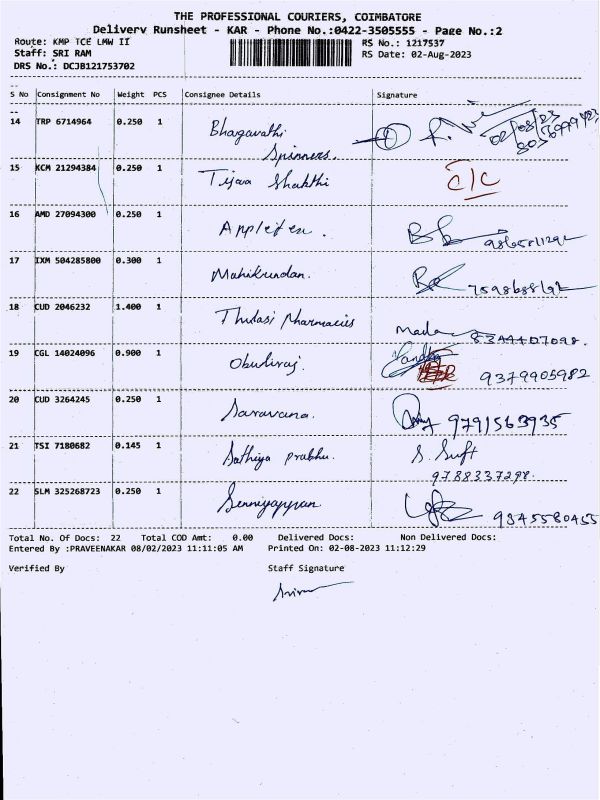 THE PROFESSIONAL COURIERS, COIMBATORE
Delivery Runsheet - KAR - Phone No.:0422-3505555 - Page No.:2
Route: KMP TCE LMW II RS No.: 1217537
Staff: SRI RAM RS Date: 02-Aug-2023
DRS No.: DCJB121753702
S No Consignment No Weight PCS Consignee Details Signature
14 TRP 6714964 0.250 1 Bhagavathi Spinners. 02/08/23
15 KCM 21294384 0.250 1 Tejaa Shakthi C/C
16 AMD 27094300 0.250 1
17 IXM 504285800 0.300 1
18 CUD 2046232 1.400 1 Thulasi Pharmacies 8344407098.
19 CGL 14024096 0.900 1 Obuliraj. 9379905982
20 CUD 3264245 0.250 1 Saravana. 9791563935
21 TSI 7180682 0.145 1 Sathiya prabhu. S. Sujt
9788337298.
22 SLM 325268723 0.250 1 Senniyappan 9345580455
Total No. Of Docs: 22 Total COD Amt: 0.00 Delivered Docs: Non Delivered Docs:
Entered By :PRAVEENAKAR 08/02/2023 11:11:05 AM Printed On: 02-08-2023 11:12:29
Verified By Staff Signature